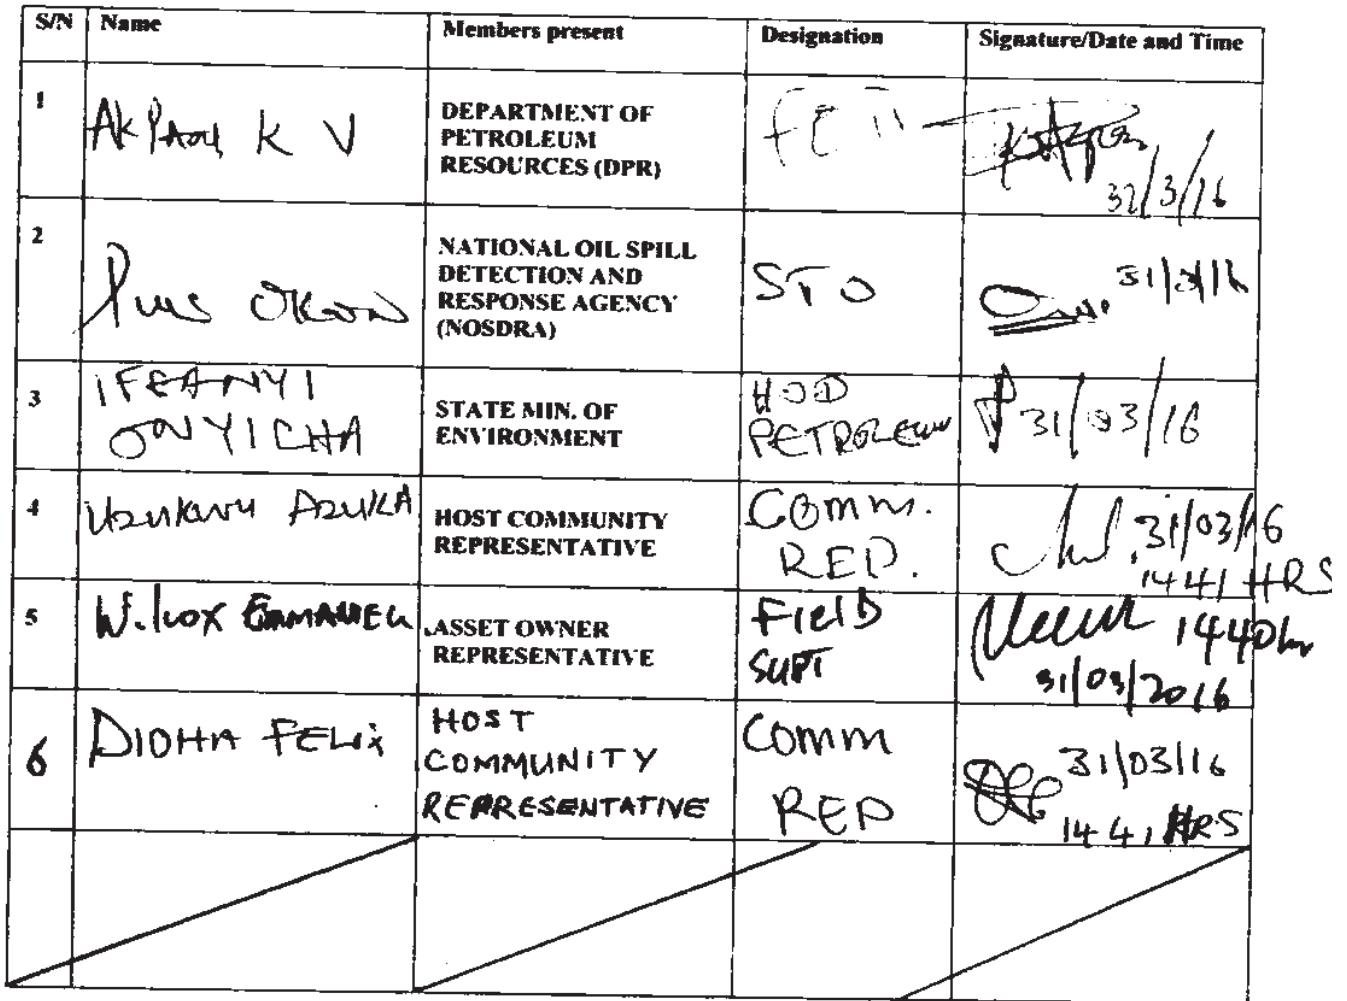 S/N Name Members present Designation Signature/Date and Time
1 K V DEPARTMENT OF
PETROLEUM
RESOURCES (DPR)
2 Pius Okon NATIONAL OIL SPILL
DETECTION AND
RESPONSE AGENCY
(NOSDRA) STO 31/3/16
3 IFEANYI
ONYICHA STATE MIN. OF
ENVIRONMENT HOD
PETROLEUM 31/03/16
4 AZUKA HOST COMMUNITY
REPRESENTATIVE Comm.
REP. 31/03/16
1441 HRS
5 Wilcox EMMANUEL ASSET OWNER
REPRESENTATIVE FIELD
SUPT 1440hr
31/03/2016
6 DIOHA FELIX HOST
COMMUNITY
REPRESENTATIVE Comm
REP 31/03/16
1441 HRS